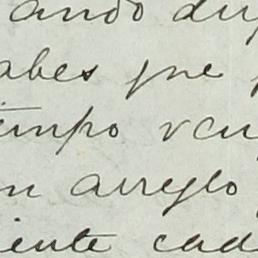 ando dis
abes que
tiempo va
un arreglo
iente cad